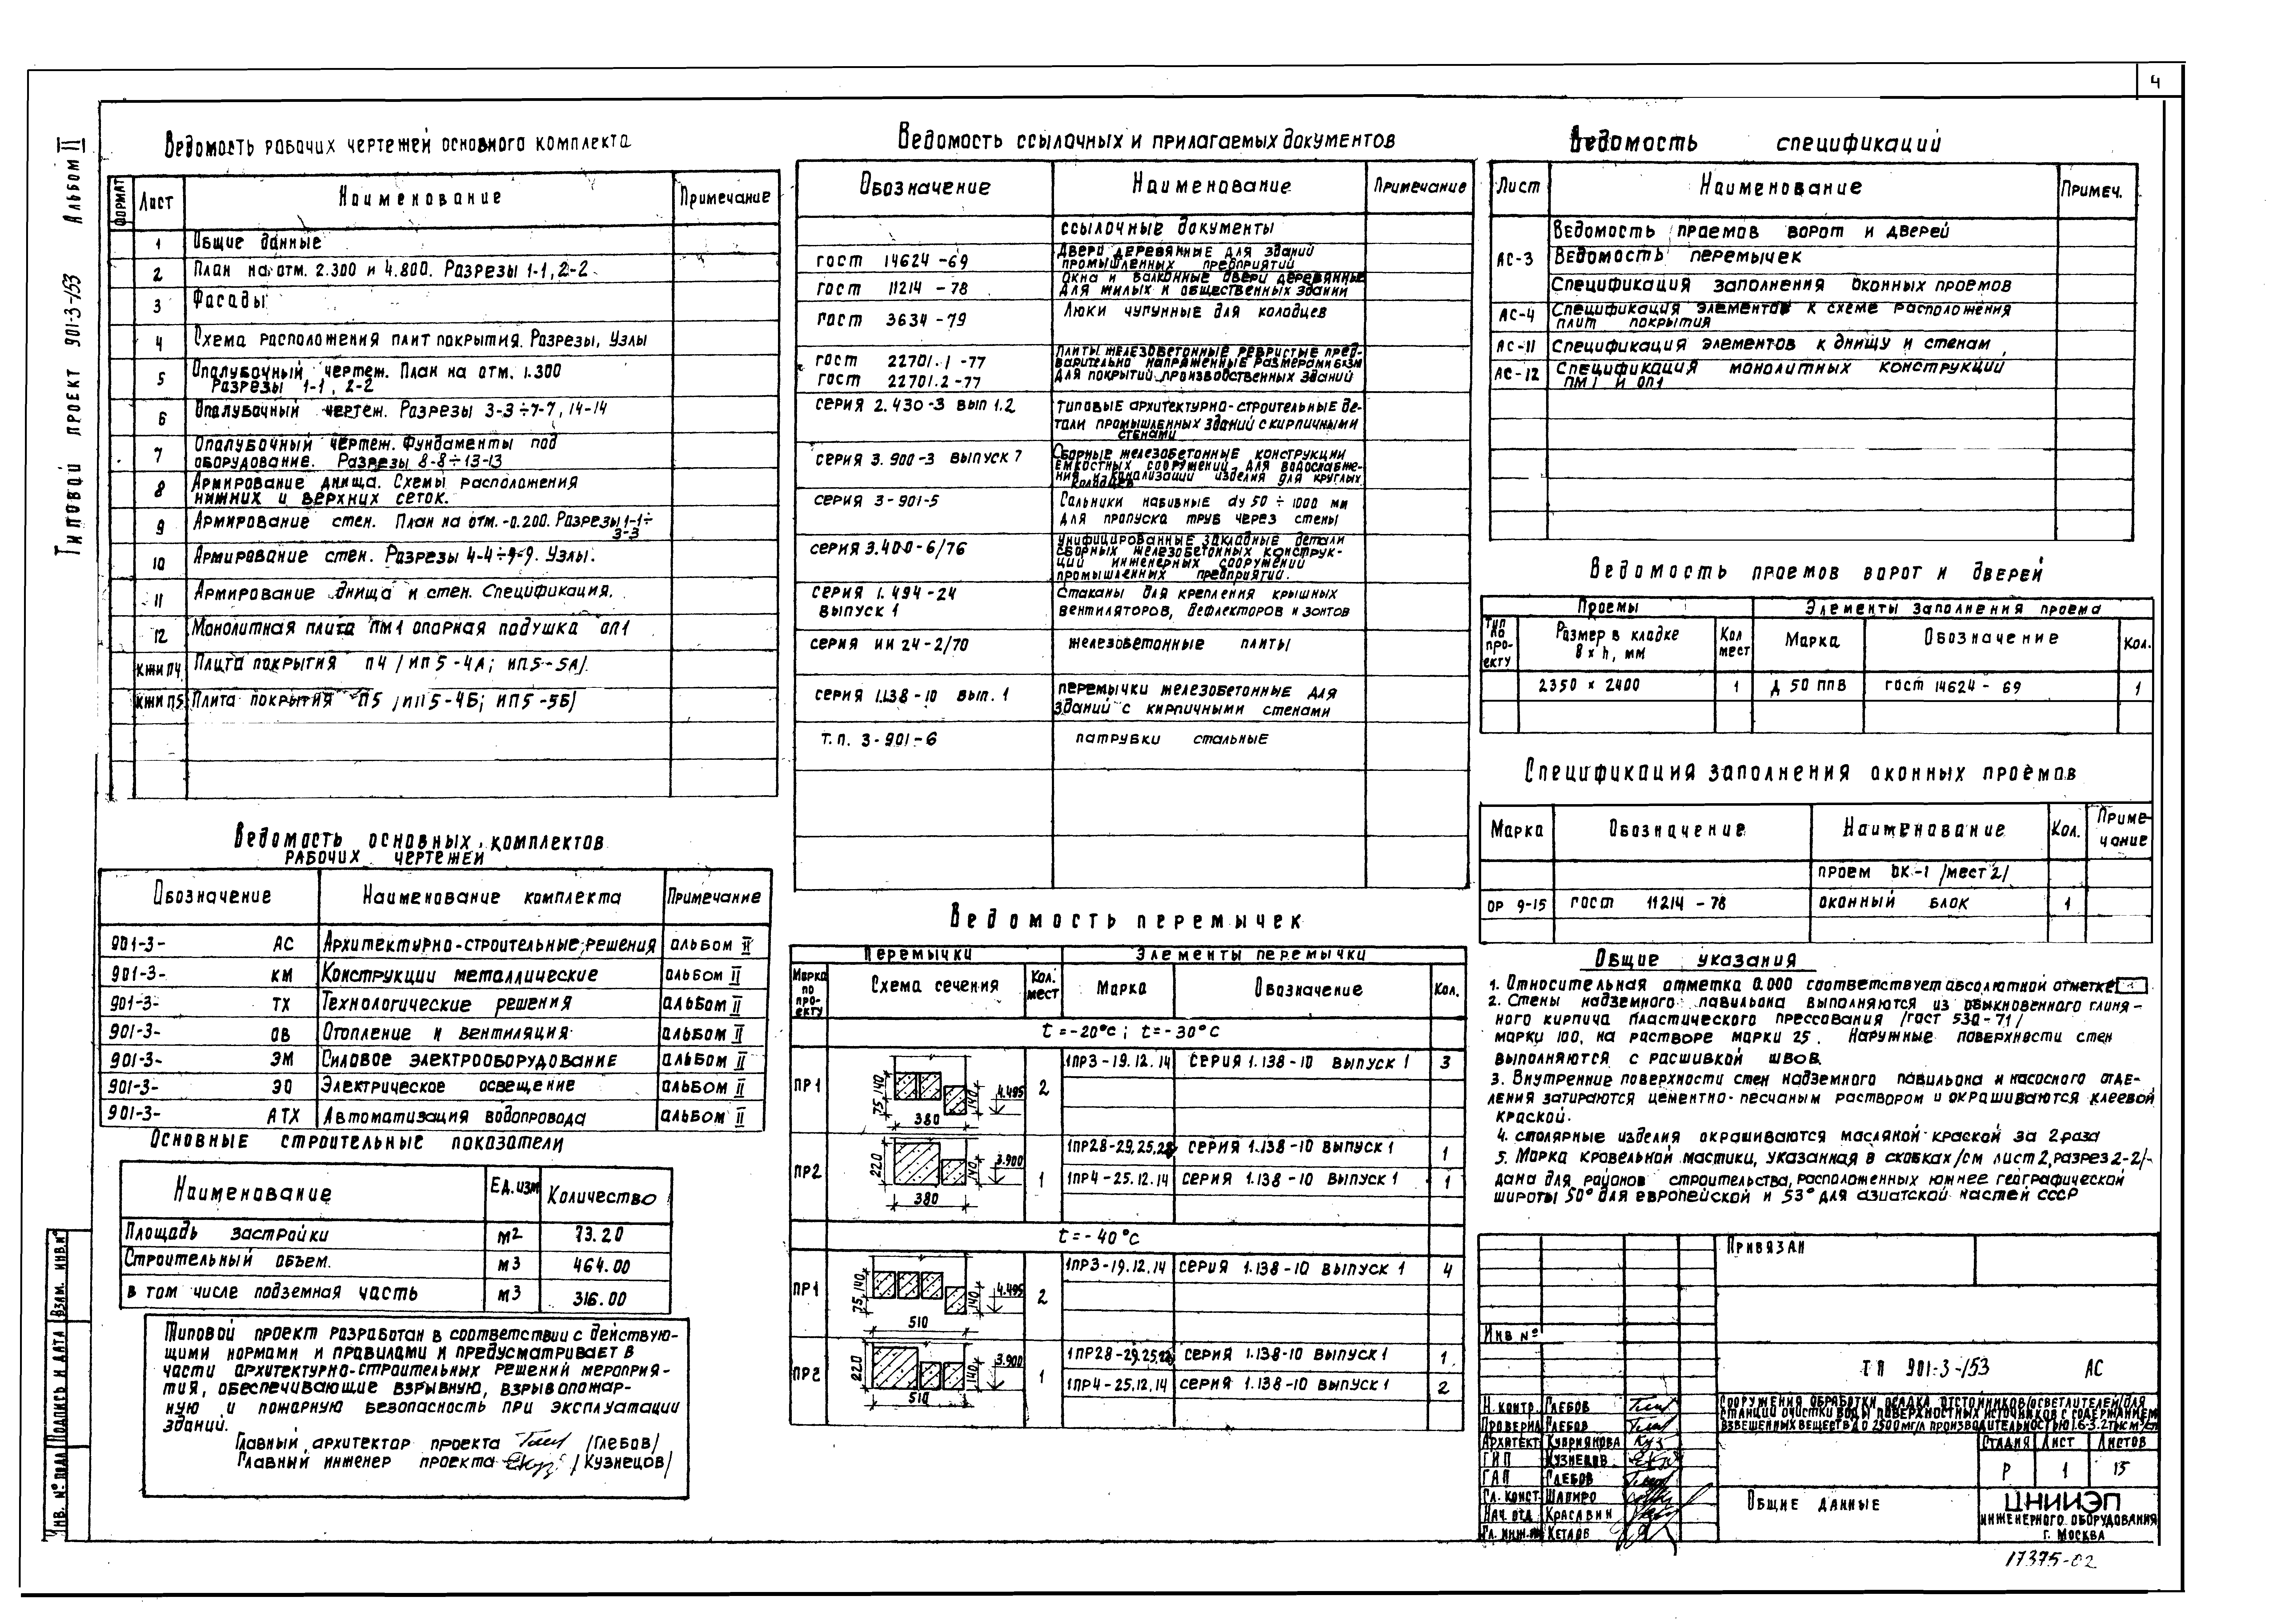 4
Типовой проект 901-3-153 Альбом II
Ведомость рабочих чертежей основного комплекта
Формат Лист Наименование Примечание
1 Общие данные
2 План на отм. 2.300 и 4.800. Разрезы 1-1, 2-2
3 Фасады
4 Схема расположения плит покрытия. Разрезы, Узлы
5 Опалубочный чертеж. План на отм. 1.300
Разрезы 1-1, 2-2
6 Опалубочный чертеж. Разрезы 3-3÷7-7, 14-14
7 Опалубочный чертеж. Фундаменты под
оборудование. Разрезы 8-8÷13-13
8 Армирование днища. Схемы расположения
нижних и верхних сеток.
9 Армирование стен. План на отм. -0.200. Разрезы 1-1÷
3-3
10 Армирование стен. Разрезы 4-4÷9-9. Узлы.
11 Армирование днища и стен. Спецификация.
12 Монолитная плита ПМ1 опорная подушка ОП1
КЖИ П4 Плита покрытия П4 /ИП5-4А; ИП5-5А/
КЖИ П5 Плита покрытия П5 /ИП5-4Б; ИП5-5Б/
Ведомость основных комплектов
рабочих чертежей
Обозначение Наименование комплекта Примечание
901-3- АС Архитектурно-строительные решения альбом II
901-3- КМ Конструкции металлические альбом II
901-3- ТХ Технологические решения альбом II
901-3- ОВ Отопление и вентиляция альбом II
901-3- ЭМ Силовое электрооборудование альбом II
901-3- ЭО Электрическое освещение альбом II
901-3- АТХ Автоматизация водопровода альбом II
Основные строительные показатели
Наименование Ед.изм Количество
Площадь застройки м2 73.20
Строительный объем. м3 464.00
в том числе подземная часть м3 316.00
Типовой проект разработан в соответствии с действую-
щими нормами и правилами и предусматривает в
части архитектурно-строительных решений мероприя-
тия, обеспечивающие взрывную, взрывопожар-
ную и пожарную безопасность при эксплуатации
зданий.
Главный архитектор проекта /Глебов/
Главный инженер проекта /Кузнецов/
Инв. № подл Подпись и дата Взам. инв.№
Ведомость ссылочных и прилагаемых документов
Обозначение Наименование Примечание
ссылочные документы
гост 14624-69 Двери деревянные для зданий
промышленных предприятий
гост 11214-78 Окна и балконные двери деревянные
для жилых и общественных зданий
гост 3634-79 Люки чугунные для колодцев
гост 22701.1-77 Плиты железобетонные ребристые пред-
варительно напряженные размерами 6х3м
гост 22701.2-77 для покрытий производственных зданий
серия 2.430-3 вып 1.2 типовые архитектурно-строительные де-
тали промышленных зданий с кирпичными
стенами
серия 3.900-3 выпуск 7 Сборные железобетонные конструкции
емкостных сооружений для водоснабже-
ния и канализации изделия для круглых
колодцев
серия 3-901-5 Сальники набивные dу 50÷1000 мм
для пропуска труб через стены
серия 3.400-6/76 унифицированные закладные детали
сборных железобетонных конструк-
ций инженерных сооружений
промышленных предприятий.
серия 1.494-24 Стаканы для крепления крышных
выпуск 1 вентиляторов, дефлекторов и зонтов
серия ИИ 24-2/70 железобетонные плиты
серия 1.138-10 вып. 1 перемычки железобетонные для
зданий с кирпичными стенами
т.п. 3-901-6 патрубки стальные
Ведомость перемычек
Перемычки Элементы перемычки
Марка по про-екту Схема сечения Кол. мест Марка Обозначение Кол.
t=-20°с; t=-30°с
ПР1 75 140 380 140 4.495 2 1ПР3-19.12.14 серия 1.138-10 выпуск 1 3
ПР2 220 380 140 3.900 1 1ПР28-29.25.22 серия 1.138-10 выпуск 1 1
1ПР4-25.12.14 серия 1.138-10 выпуск 1 1
t=-40°с
ПР1 75 140 510 140 4.495 2 1ПР3-19.12.14 серия 1.138-10 выпуск 1 4
ПР2 220 510 140 3.900 1 1ПР28-29.25.22 серия 1.138-10 выпуск 1 1
1ПР4-25.12.14 серия 1.138-10 выпуск 1 2
Ведомость спецификаций
Лист Наименование Примеч.
Ведомость проемов ворот и дверей
АС-3 Ведомость перемычек
Спецификация заполнения оконных проемов
АС-4 Спецификация элементов к схеме расположения
плит покрытия
АС-11 Спецификация элементов к днищу и стенам
АС-12 Спецификация монолитных конструкций
ПМ1 и ОП1
Ведомость проемов ворот и дверей
Проемы Элементы заполнения проема
Тип по про-екту Размер в кладке в х h, мм Кол мест Марка Обозначение Кол.
2350 х 2400 1 Д 50 ППВ гост 14624-69 1
Спецификация заполнения оконных проемов
Марка Обозначение Наименование Кол. Приме-чание
проем ОК-1 /мест 2/
ОР 9-15 гост 11214-78 оконный блок 1
Общие указания
1. Относительная отметка 0.000 соответствует абсолютной отметке
2. Стены надземного павильона выполняются из обыкновенного глиня-
ного кирпича пластического прессования /гост 530-71/
марки 100, на растворе марки 25. Наружные поверхности стен
выполняются с расшивкой швов.
3. Внутренние поверхности стен надземного павильона и насосного отде-
ления затираются цементно-песчаным раствором и окрашиваются клеевой
краской.
4. столярные изделия окрашиваются масляной краской за 2 раза
5. Марка кровельной мастики, указанная в скобках /см лист 2, разрез 2-2/-
дана для районов строительства, расположенных южнее географической
широты 50° для европейской и 53° для азиатской частей СССР
Привязан
Инв №
ТП 901-3-153 АС
Сооружения обработки осадка отстойников/осветлителей/для
станций очистки воды поверхностных источников с содержанием
взвешенных веществ до 2500 мг/л производительностью 1.6-3.2 тыс м³/сут
Н. контр. Глебов
Проверил Глебов
Архитект. Куприянова
ГИП Кузнецов
ГАП Глебов
Гл. конст. Шапиро
Нач. отд Красавин
Гл. инж. Кетаов
Стадия Лист Листов
Р 1 15
Общие данные
ЦНИИЭП
инженерного оборудования
г. Москва
17375-02